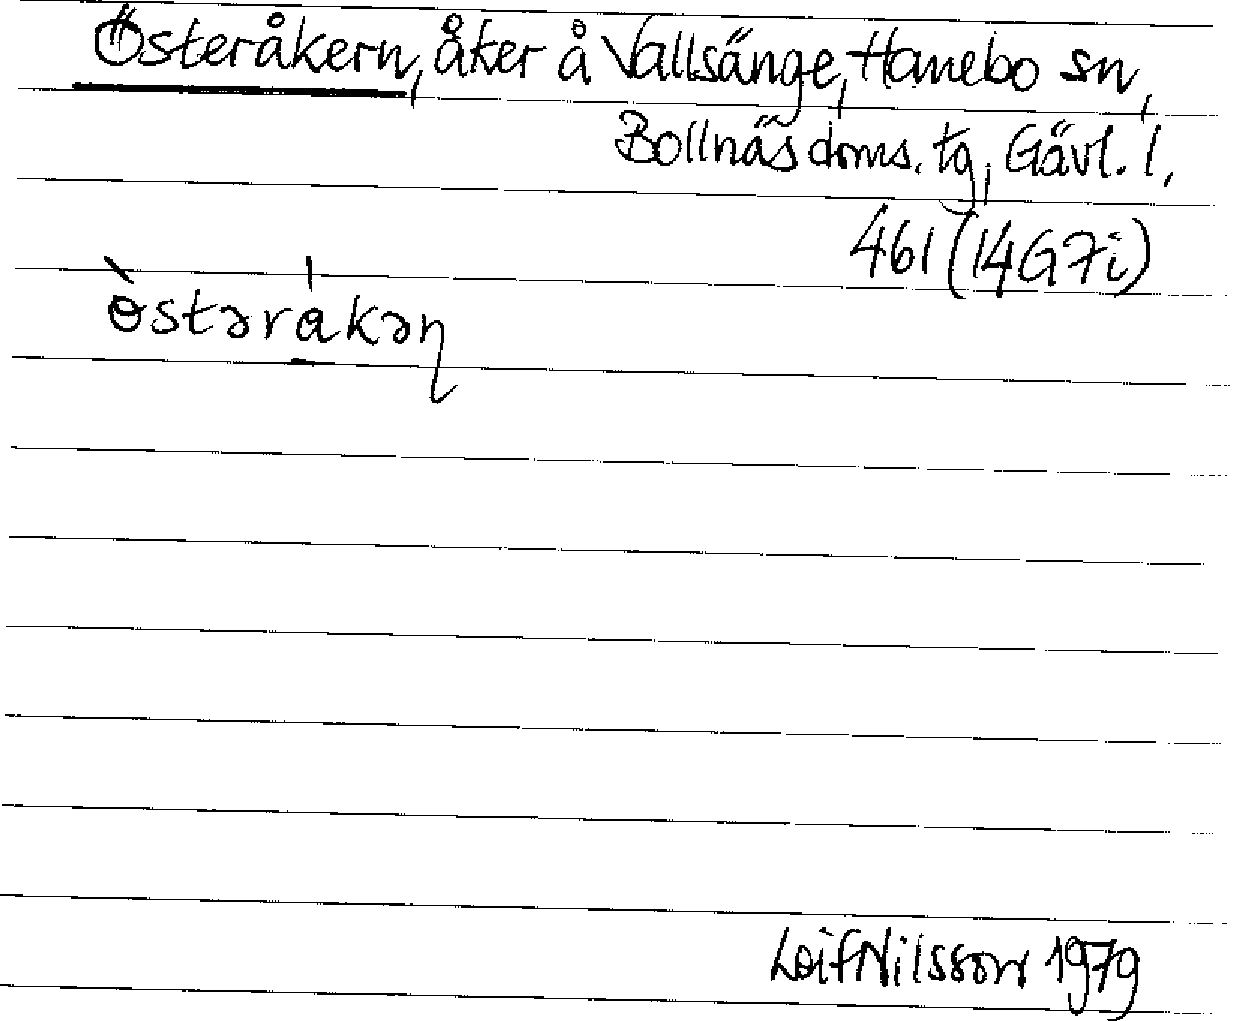 Österåkern, åker å Vallsänge, Hanebo sn,
Bollnäs doms. tg, Gävl. l.
461 (14G7i)
ɵ̀stərákəɳ
Leif Nilsson 1979